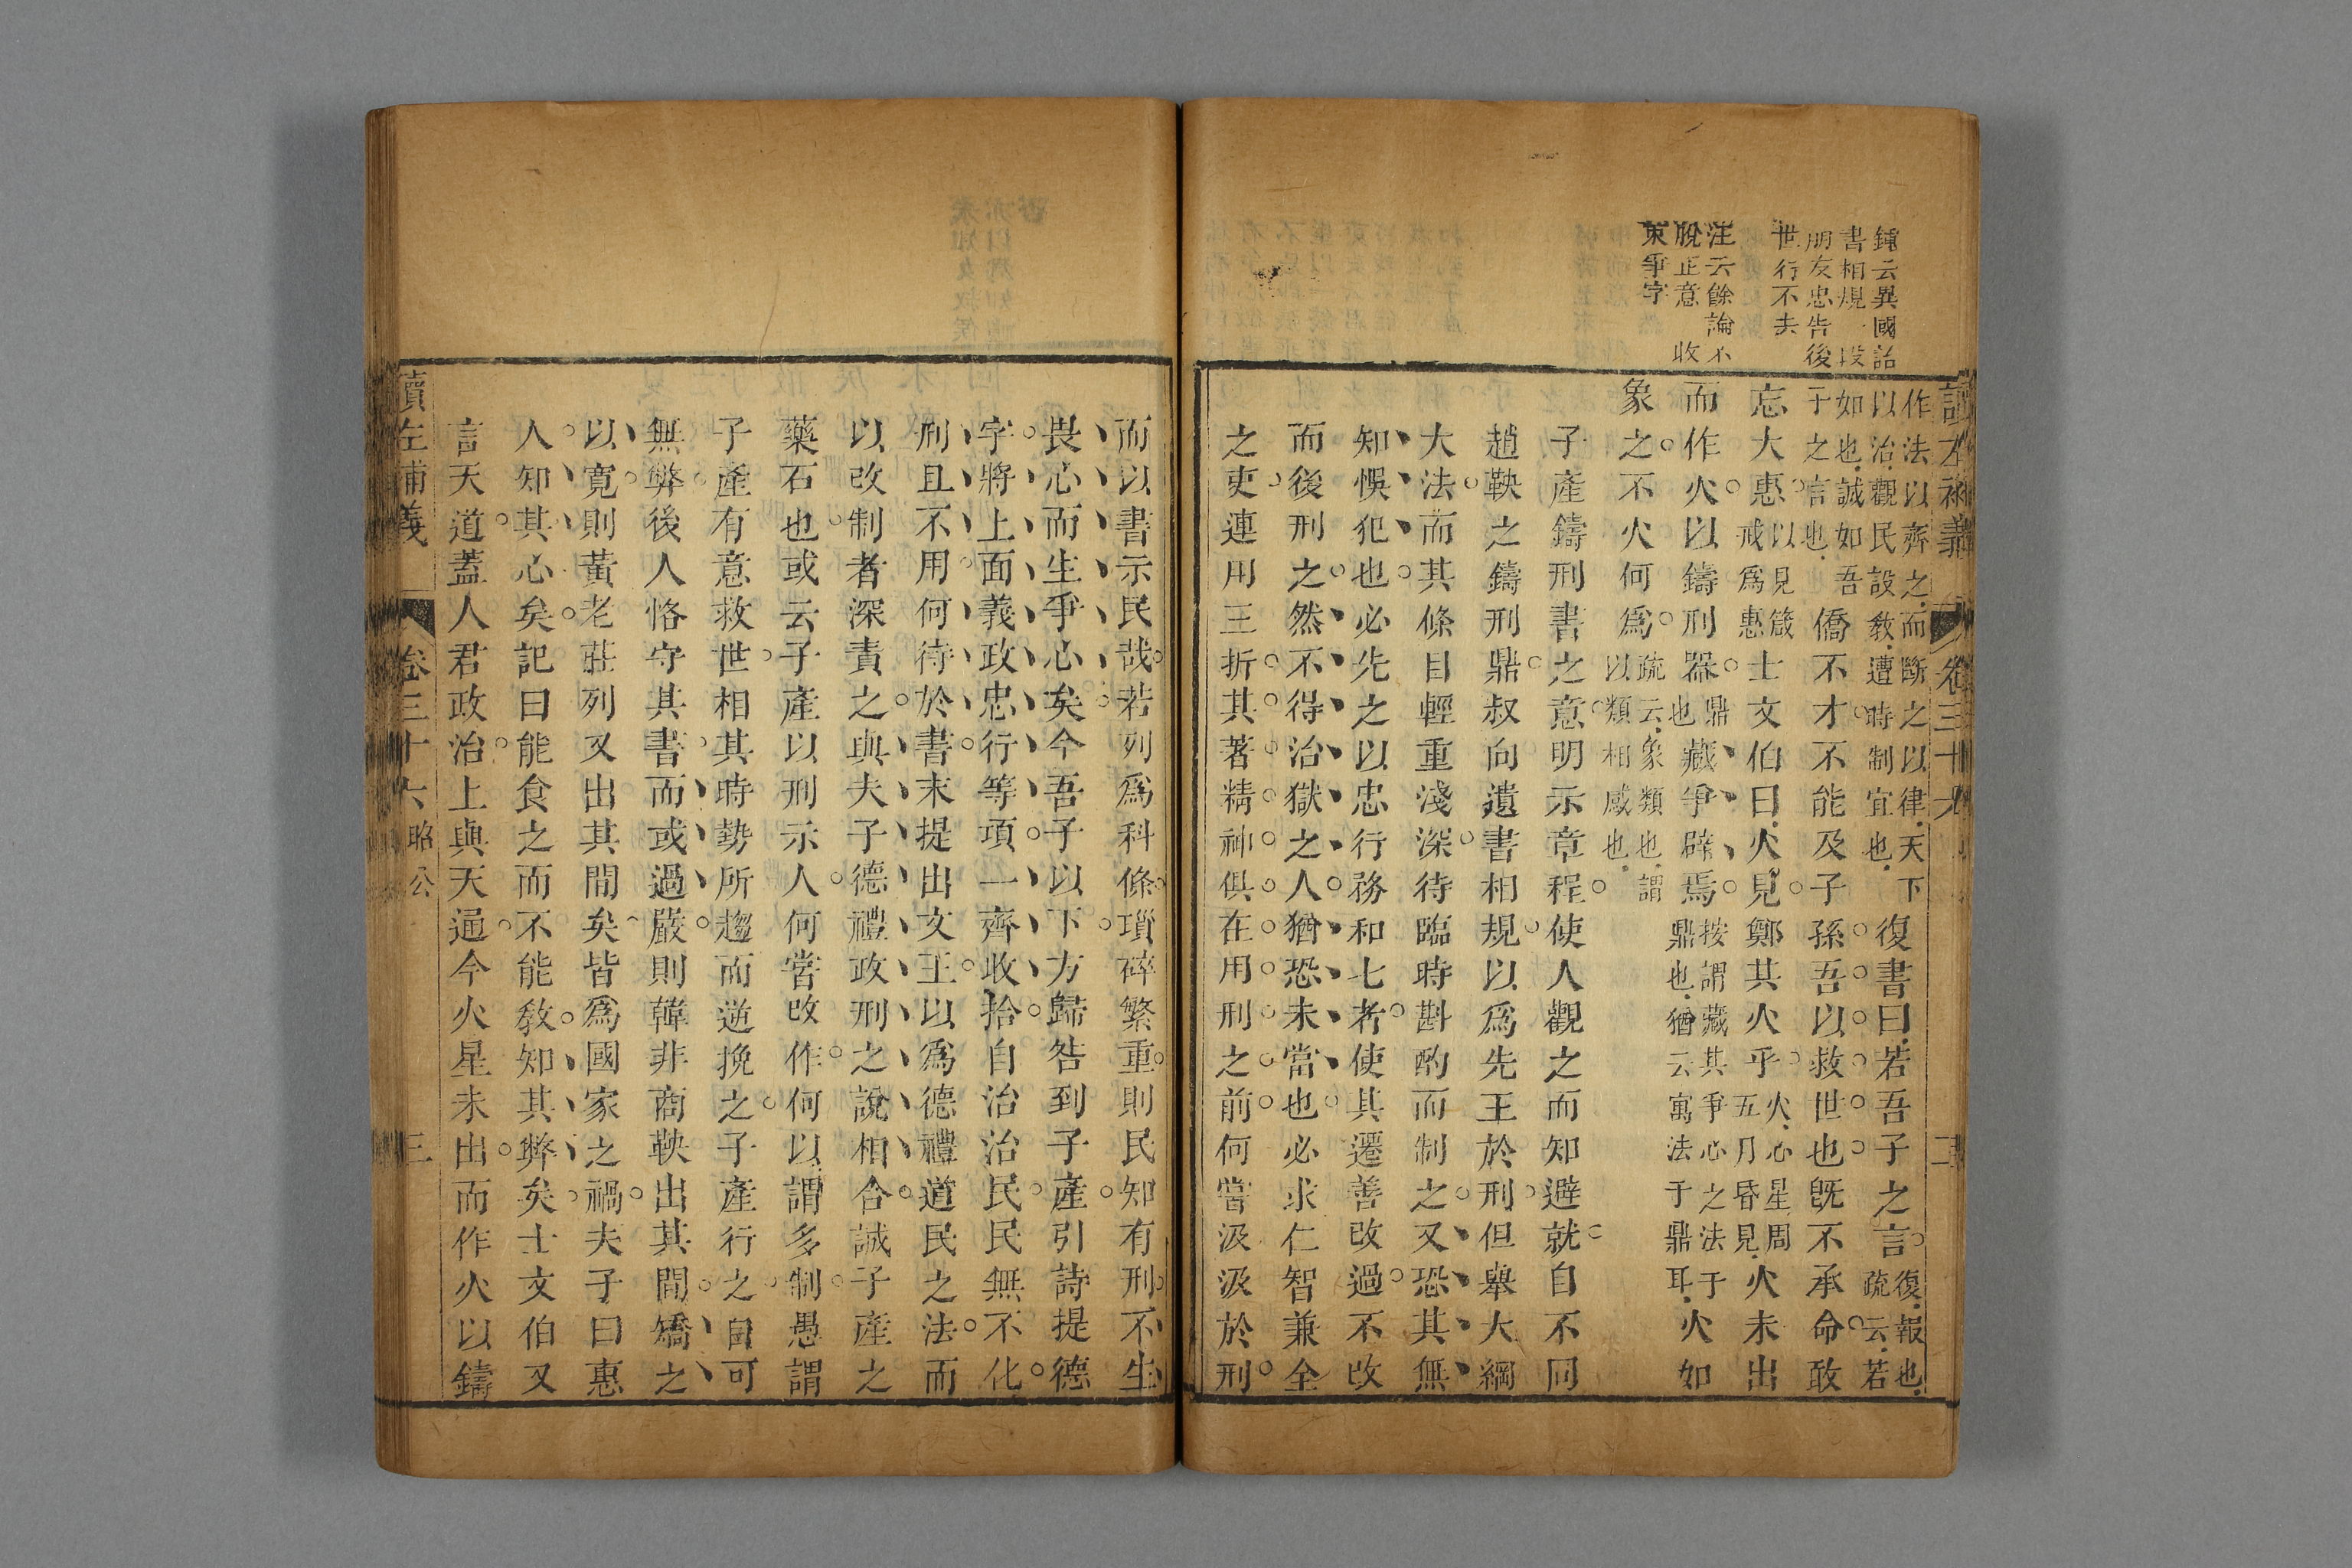 鍾云異國詒
書相規一段
朋友忠告後
世行不去
注云餘論不
脫正意 收
束爭字
作法以齊之而斷之以律天下
以治觀民設教遭時制宜也
復書曰若吾子之言
復報也
疏云若
如也誠如吾
于之言也
僑不才不能及子孫吾以救世也既不承命敢
忘大惠
以見箴
戒爲惠
士文伯曰火見鄭其火乎
火心星周
五月昏見
火未出
而作火以鑄刑器
鼎
也
藏爭辟焉
按謂藏其爭心之法于
鼎也猶云寓法于鼎耳
火如
象之不火何爲
疏云象類也謂
以類相感也
子產鑄刑書之意明示章程使人觀之而知避就自不同
趙鞅之鑄刑鼎叔向遺書相規以爲先王於刑但舉大綱
大法而其條目輕重淺深待臨時斟酌而制之又恐其無
知悞犯也必先之以忠行務和七者使其遷善改過不改
而後刑之然不得治獄之人猶恐未當也必求仁智兼全
之吏連用三折其著精神俱在用刑之前何嘗汲汲於刑
而以書示民哉若列爲科條瑣碎繁重則民知有刑不生
畏心而生爭心矣今吾子以下方歸咎到子產引詩提德
字將上面義政忠行等項一齊收拾自治治民民無不化
刑且不用何待於書末提出文王以爲德禮道民之法而
以改制者深責之與夫子德禮政刑之說相合誠子產之
藥石也或云子產以刑示人何嘗改作何以謂多制愚謂
子產有意救世相其時勢所趨而逆挽之子產行之自可
無弊後人恪守其書而或過嚴則韓非商鞅出其間矯之
以寬則黃老莊列又出其間矣皆爲國家之禍夫子曰惠
人知其心矣記曰能食之而不能教知其弊矣士文伯又
言天道蓋人君政治上與天通今火星未出而作火以鑄
讀左補義 卷三十六 昭公 三